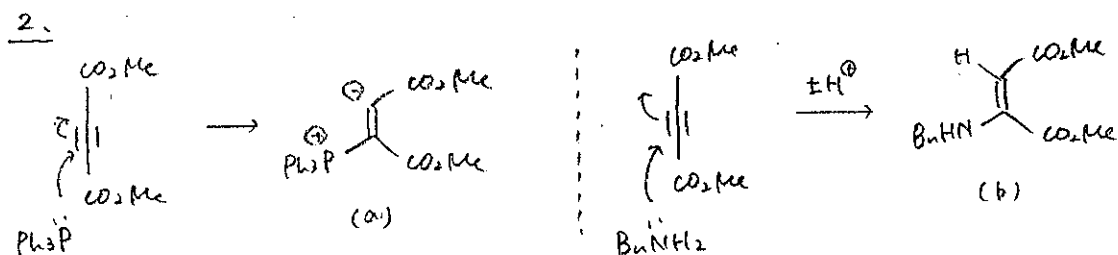 2.
CO2Me
CO2Me
Ph3P
⊖
CO2Me
⊕
Ph3P
CO2Me
(a)
CO2Me
CO2Me
BuNH2
±H⊕
H
CO2Me
BuHN
CO2Me
(b)